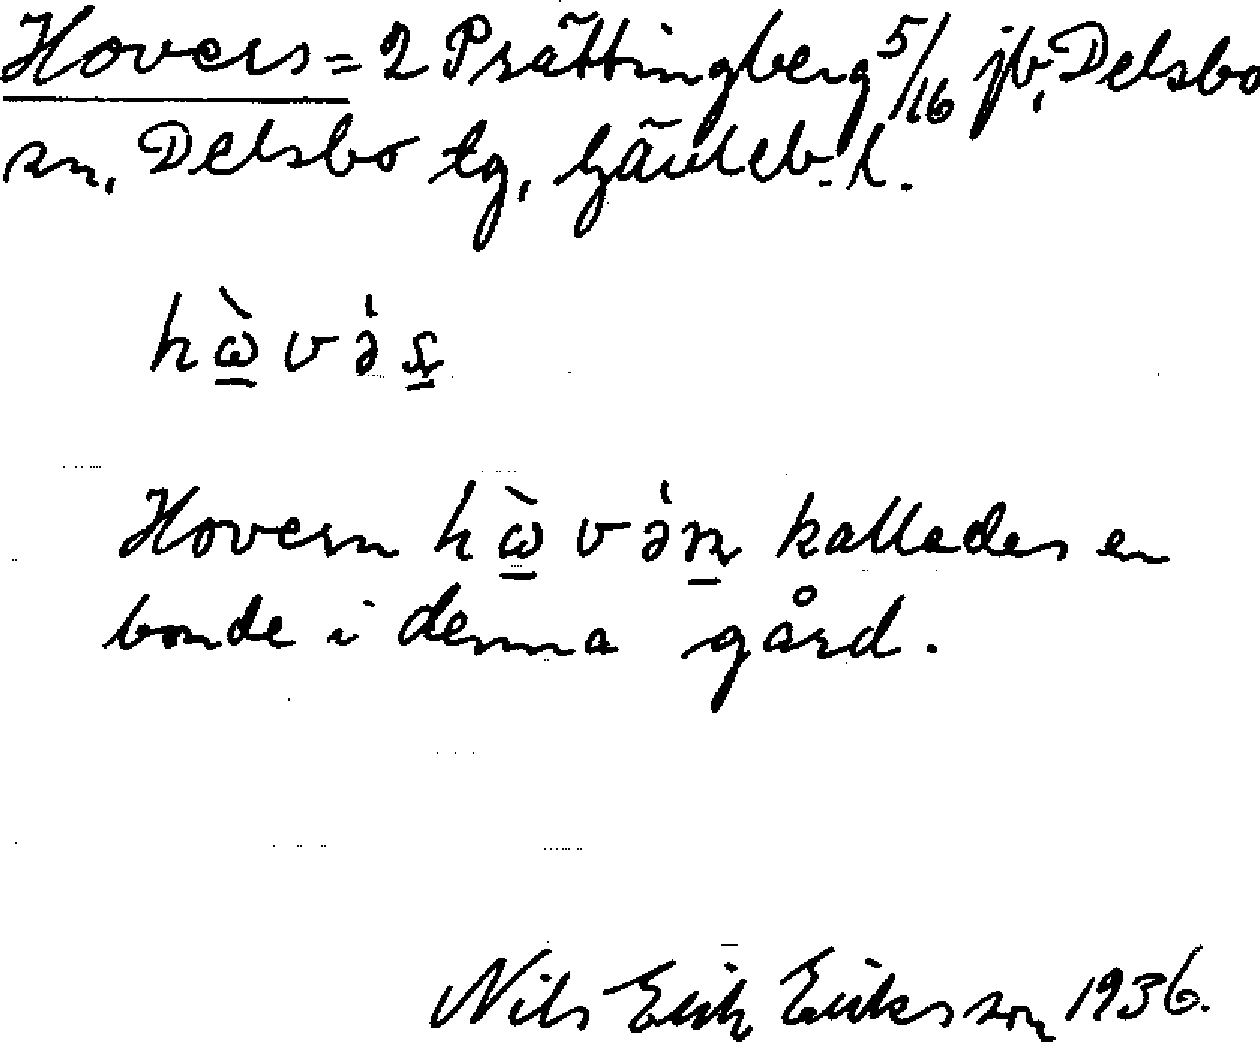 Hovers = 2 Prättingberg 5/16 jb, Delsbo
sn, Delsbo tg, Gävleb. l.
hὼvəʂ
Hovern hὼvəɳ kallades en
bonde i denna gård.
Nils Erik Eriksson 1936.